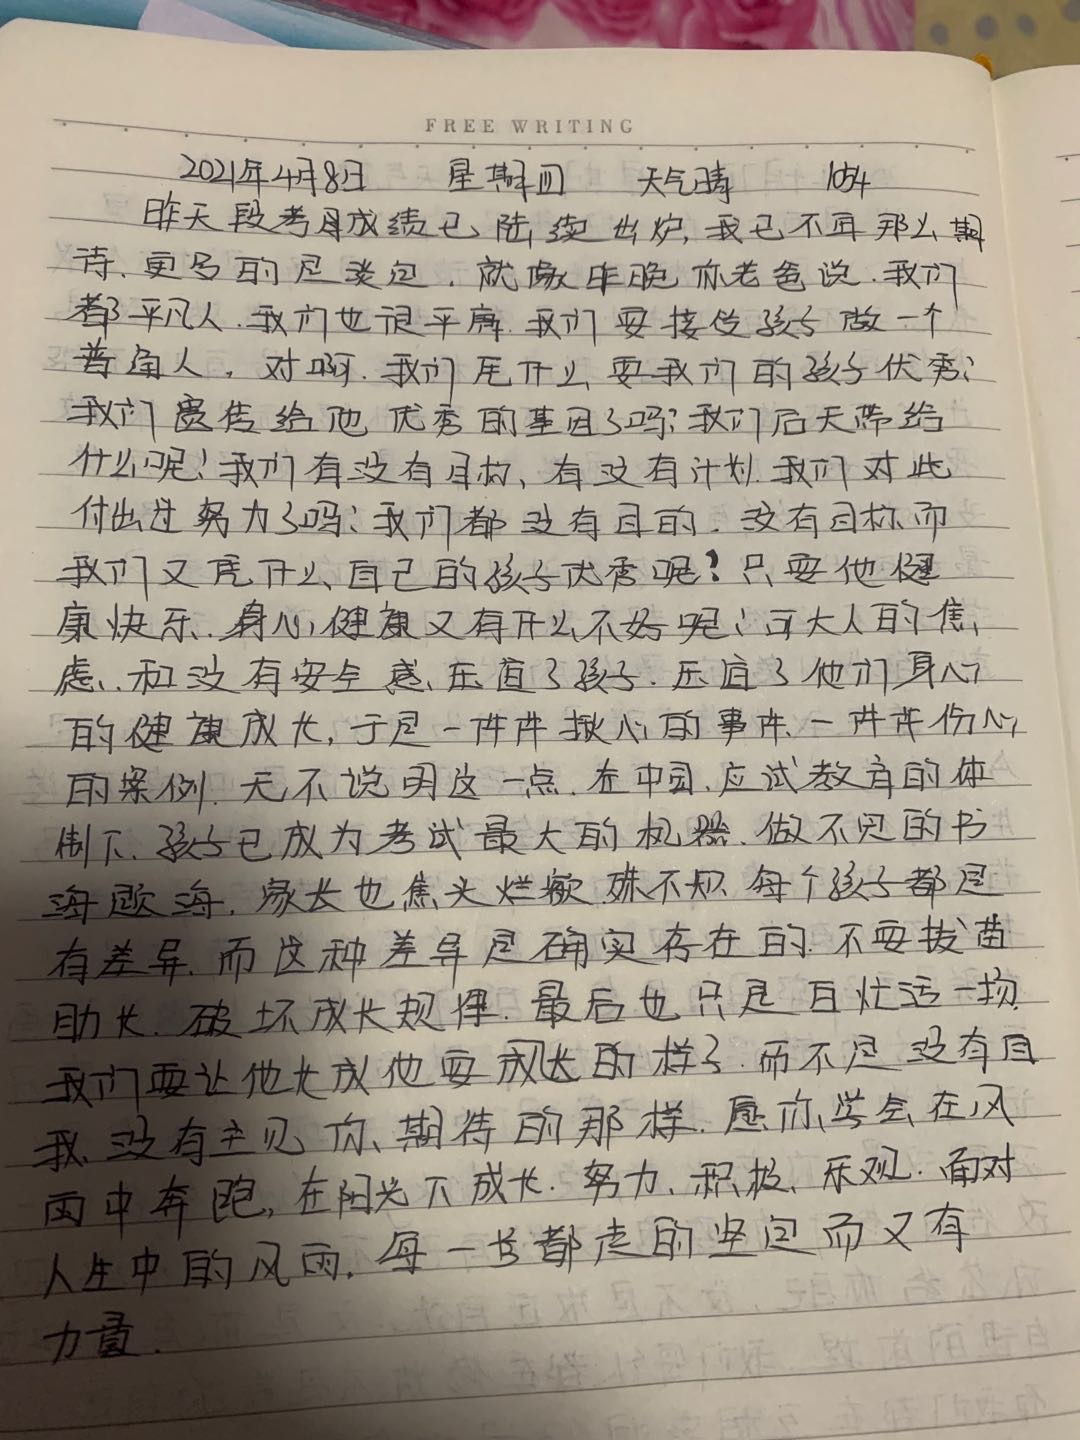 FREE WRITING
2021年4月8日 星期四 天气晴 1054
昨天段考月成绩已陆续出炉,我已不再那么期
待、更多的是淡定,就像昨晚你老爸说.我们
都平凡人.我们也很平庸.我们要接位孩子做一个
普通人,对啊.我们凭什么要我们的孩子优秀?
我们遗传给他优秀的基因了吗?我们后天带给
什么呢?我们有没有目标、有没有计划.我们对此
付出过努力了吗?我们都没有目的.没有目标而
我们又凭什么自己的孩子优秀呢?只要他健
康快乐.身心健康又有什么不好呢?可大人的焦
虑.和没有安全感、压垮了孩子.压垮了他们身心
的健康成长,于是一件件揪心的事件、一件件伤心
的案例.无不说明这一点.在中国.应试教育的体
制下.孩子已成为考试最大的机器.做不完的书
海题海.家长也焦头烂额.殊不知.每个孩子都是
有差异.而这种差异是确实存在的.不要拔苗
助长.破坏成长规律.最后也只是白忙活一场.
我们要让他长成他要成长的样子.而不是没有自
我、没有主见你、期待的那样.愿你学会在风
雨中奔跑,在阳光下成长.努力、积极、乐观.面对
人生中的风雨.每一步都走的坚定而又有
力量.